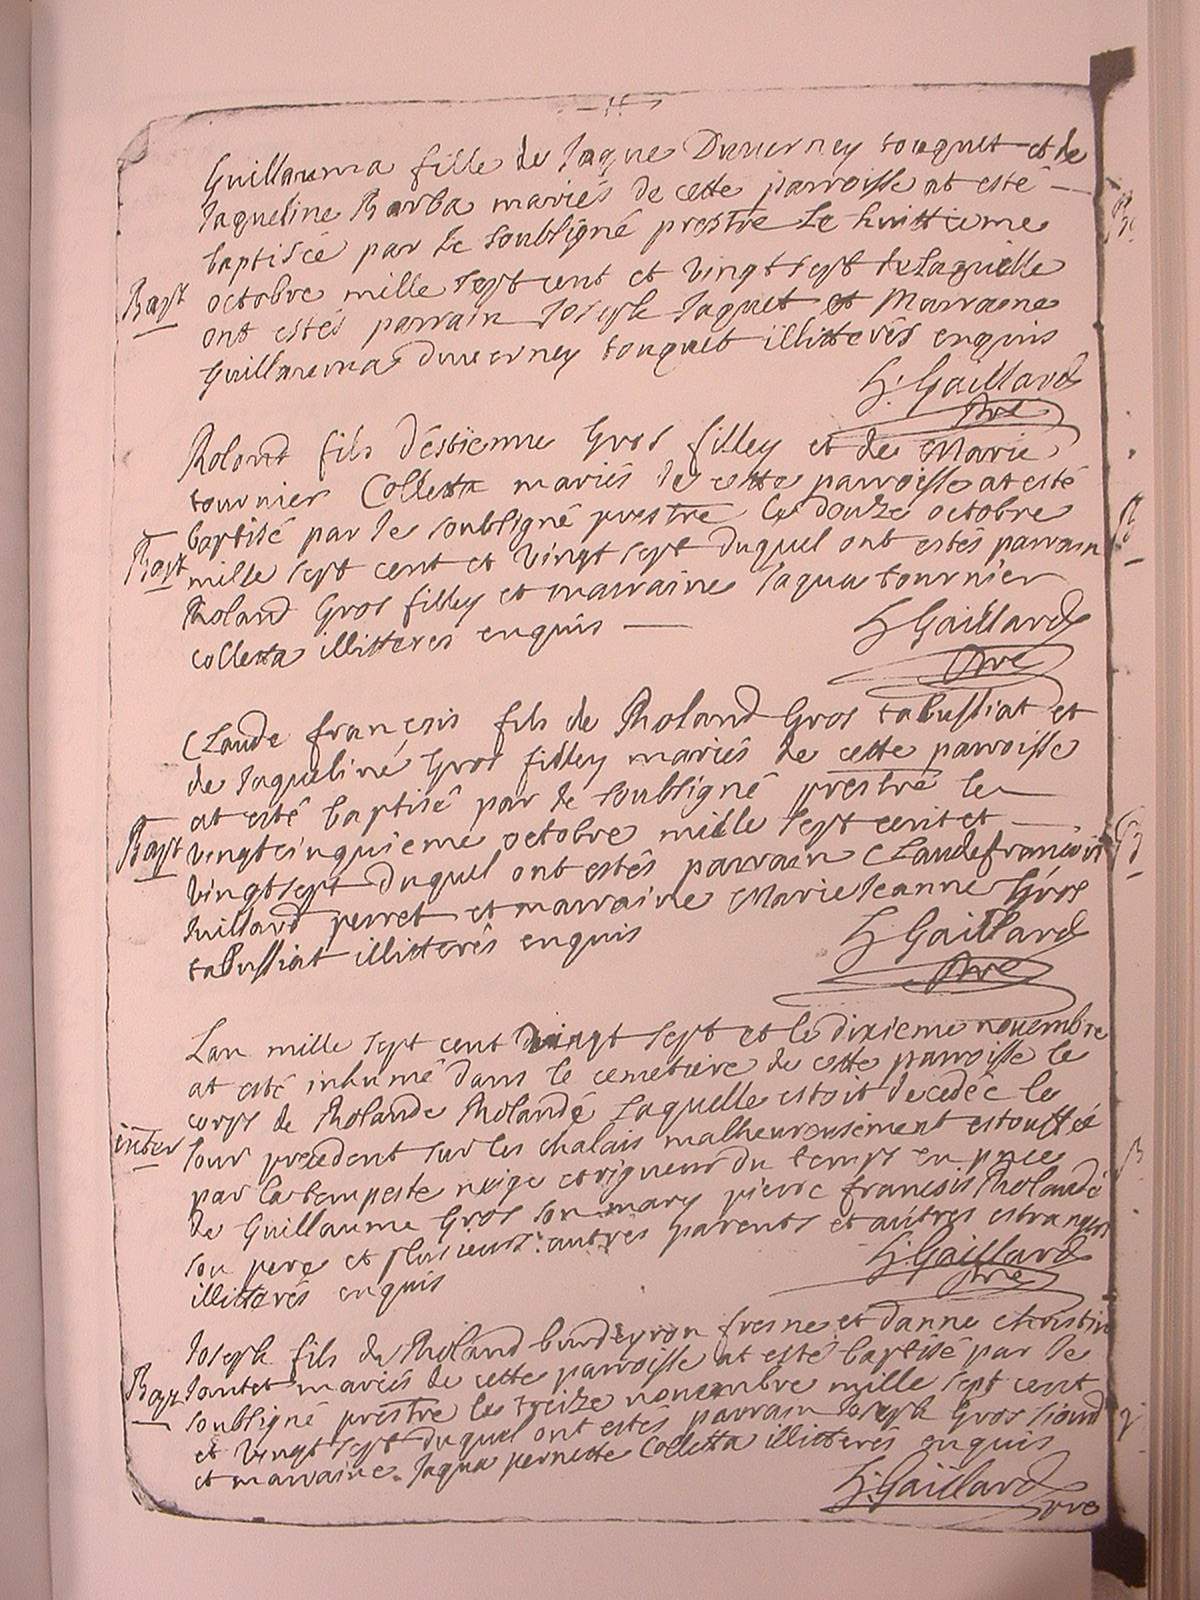 Guillauma fille de Jaque Duverney touquet et de
Jaqueline Barba mariés de cette parroisse at esté
baptisée par le soubsigné prestre le huittieme
Bapt octobre mille sept cent et vingt sept de laquelle
ont estés parrain Joseph Jaquet et Marraine
Guillauma duverney touquet illitterés enquis
h: Gaillard
pre
Roland fils d'éstienne Gros filley et de Marie
tournier Colletta mariés de cette parroisse at esté
baptisé par le soubsigné prestre le douze octobre
Bapt mille sept cent et vingt sept duquel ont estés parrain
Roland Gros filley et marraine Jaqua tournier
colletta illitteres enquis
h Gaillard
pre
Claude françois fils de Roland Gros tabussiat et
de Jaqueline Gros filley mariés de cette parroisse
at esté baptisé par le soubsigné prestre le
Bapt vingtcinquieme octobre mille sept cent et
vingt sept duquel ont estés parrain Claude francois
Juillard perret et marraine Marie Jeanne Gros
tabussiat illitterés enquis
h Gaillard
pre
Lan mille sept cent vingt sept et le dixieme novembre
at esté inhumé dans le cemetiere de cette parroisse le
corps de Rolande Rolandé laquelle estoit decedée le
inter Jour precedent sur les chalais malheureusement estouffée
par la tempeste neige et rigueur du temps en pnce
de Guillaume Gros son mary pierre francois Rolandé
son pere et plusieurs autres parents et autres estrangers
illitterés enquis
h: Gaillard
pre
Joseph fils de Roland burdeyron fresne et danne christine
Bapt Jantet mariés de cette parroisse at esté baptisé par le
soubsigné prestre le treize novembre mille sept cent
et vingt sept duquel ont estés parrain Joseph Gros
et marraine Jaqua pernette Colletta illitterés enquis
h: Gaillard
pre